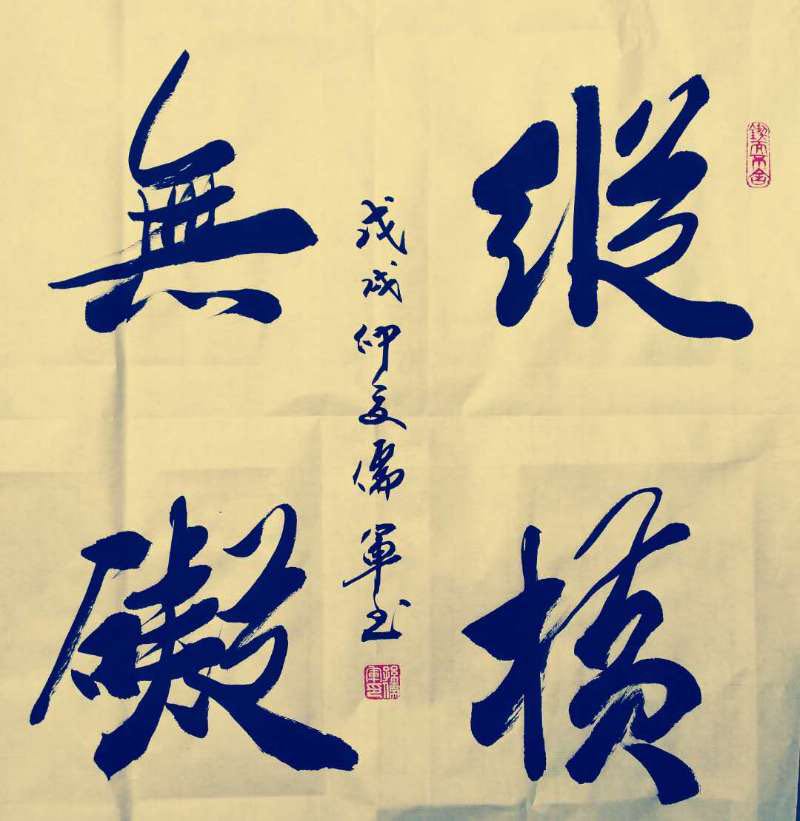 縱橫
無礙
戊戌仲夏儒軍书